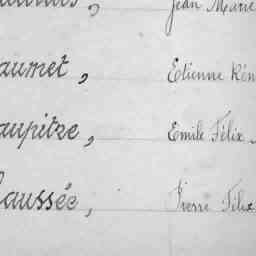 Jean Marie
aumet, Etienne Rén
aupitre, Emile Félix
aussée, Pierre Félix